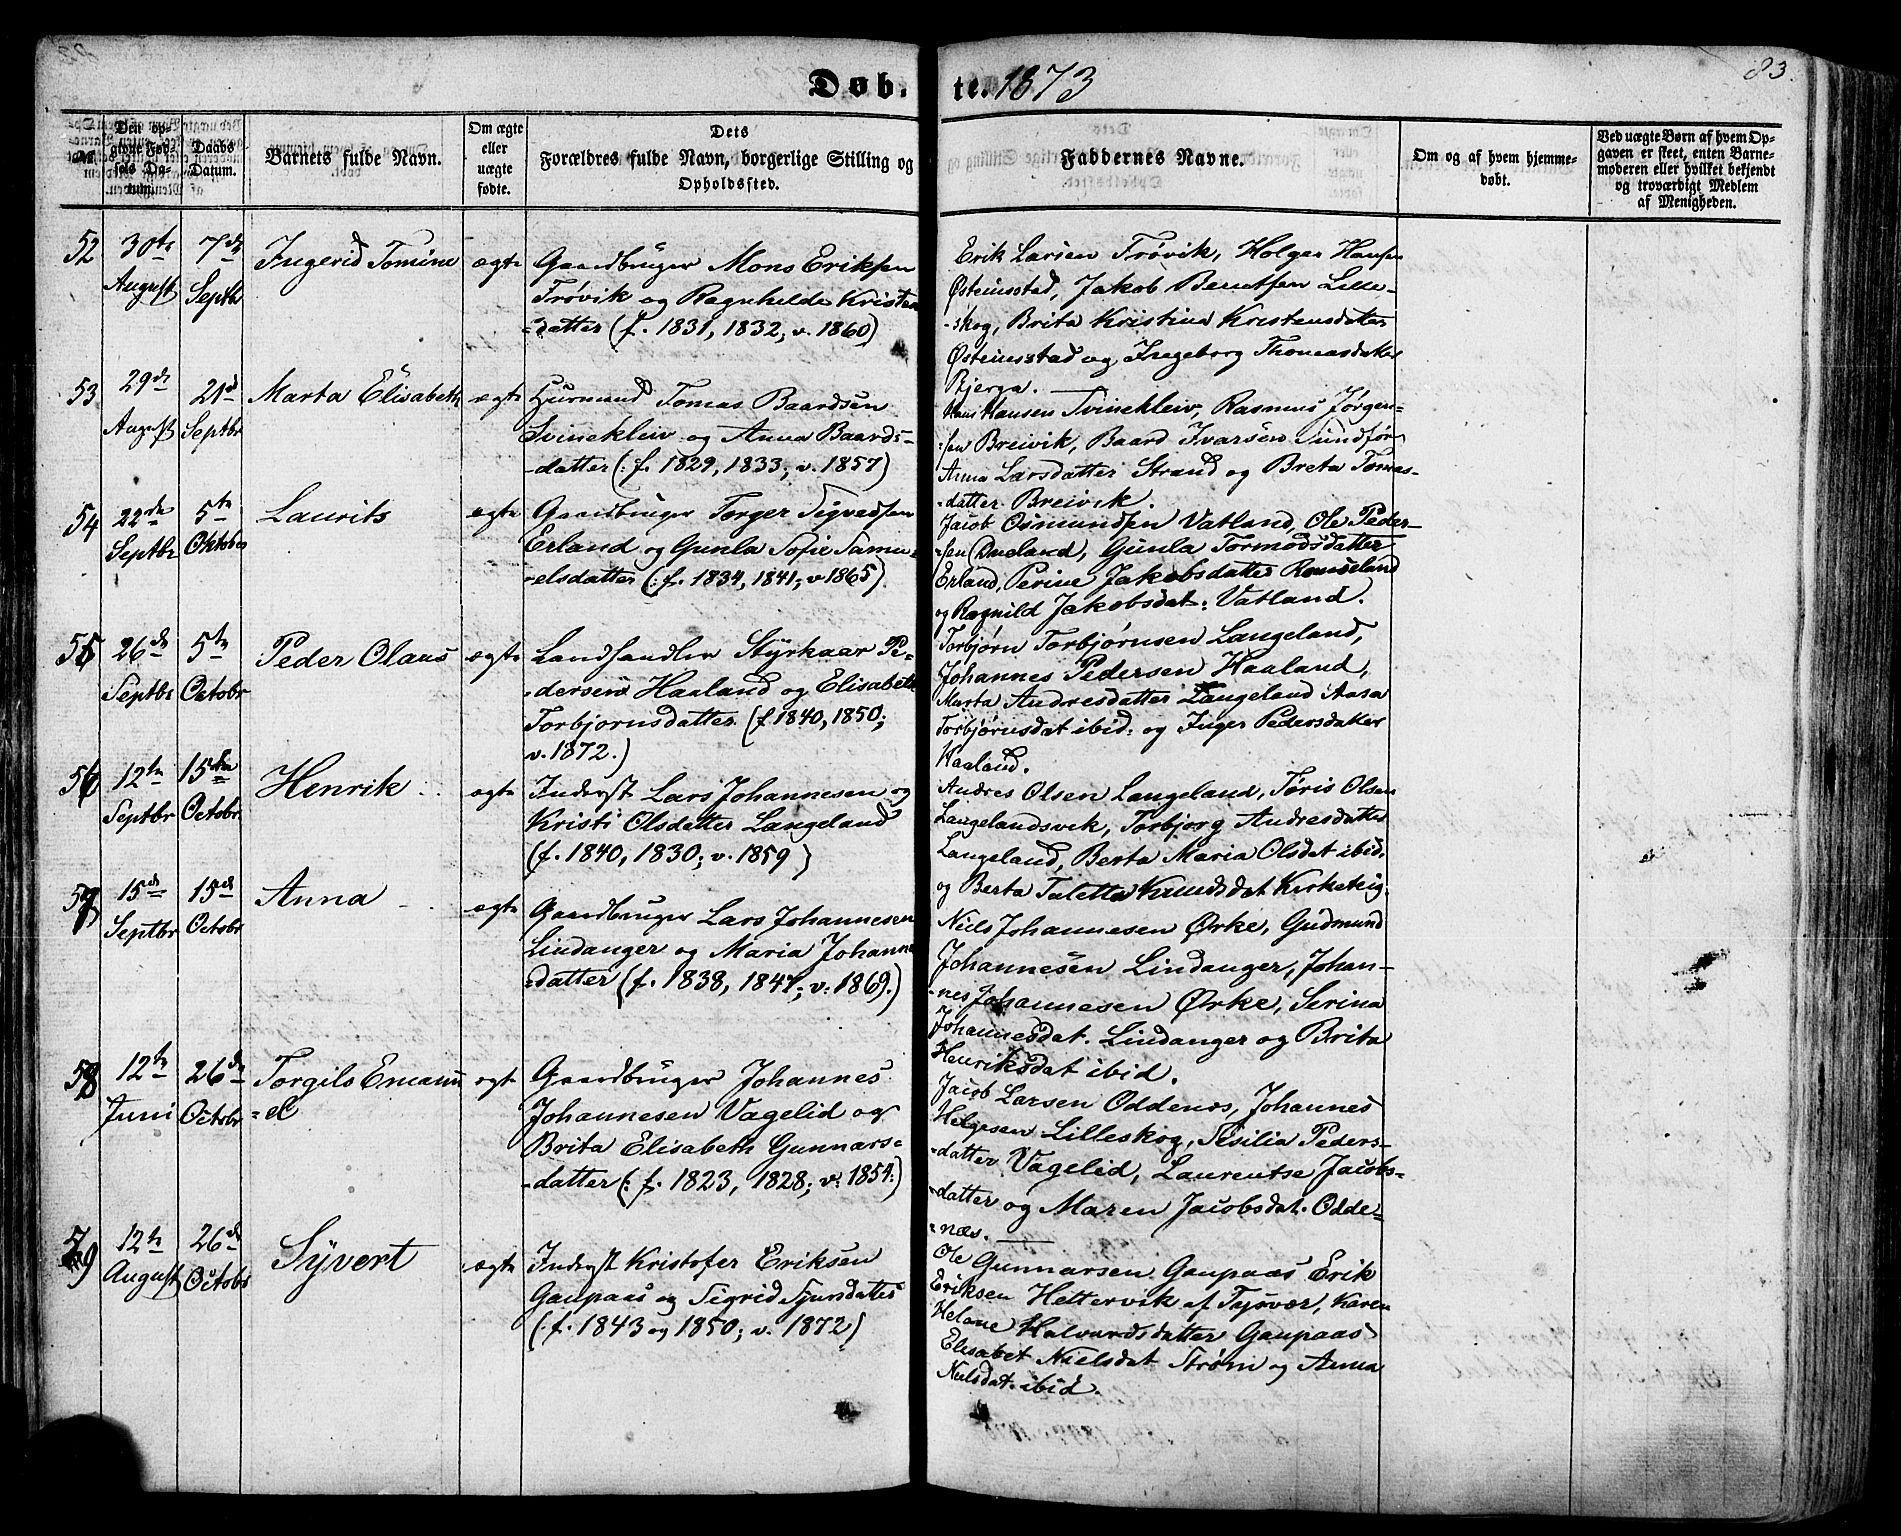 Døb. te. 1873
83.
№
Den opgivne Fødsels Datum.
Daabs Datum.
Barnets fulde Navn.
Om ægte eller uægte fødte.
Dets Forældres fulde Navn, borgerlige Stilling og Opholdssted.
Faddernes Navne.
Om og af hvem hjemmedøbt.
Ved uægte Børn af hvem Opgaven er skeet, enten Barnemoderen eller hvilket bekjendt og troværdigt Medlem af Menigheden.
52 30te August 7de Septbr Ingerid Tomine ægte
Gaardbruger Mons Eriksen
Trøvik og Ragnhilde Kristen
-datter (f. 1831, 1832, v. 1860)
Erik Larsen Trøvik, Holger Hansen
Østeinsstad, Jakob Bentsen Lille-
-skog, Brita Kristina Kristensdatter
Østeinsstad og Ingeborg Thomasdatter
Bjerga.
53 29de August 21de Septbr Marta Elisabeth ægte
Huusmand Tomas Baardsen
Svinekleiv og Anna Baards-
-datter (: f. 1829, 1833; v. 1857)
Hans Hansen Svinekleiv, Rasmus Jørgen-
-sen Breivik, Baard Ivarsen Sundfør
Anna Larsdatter Strand og Breta Tomas-
-datter Breivik.
54 22de Septbr 5te Oktober Laurits ægte
Gaardbruger Torger Sigvedsen
Erland og Gunla Sofie Samu-
-elsdatter (: f. 1834, 1841; v. 1865).
Jacob Osmundsen Vatland, Ole Peder-
-sen Dueland, Gunla Tormodsdatter
Erland, Perine Jakobsdatter
og Ragnild Jakobsdat. Vatland.
55 26de Septbr 5te Octobr Peder Olaus ægte
Landhandler Styrkaar Pe-
-dersen Haaland og Elisabeth
Torbjornsdatter (f. 1840, 1850;
v. 1872.)
Torbjørn Torbjørnsen Langeland,
Johannes Pedersen Haaland,
Marta Andresdatter Langeland, Aasa
Torbjørnsdat ibid. og Inger Pedersdatter
Haaland.
56 12te Septbr 15de Octobr Henrik ægte
Inderst Lars Johannesen og
Kristi Olsdatter Langeland
(f. 1840, 1830; v. 1859)
Andres Olsen Langeland, Tøris Olsen
Langelandsvik, Torbjorg Andresdatter
Langeland, Berta Maria Olsdat ibid.
og Berta Taletta Knudsdat Kirketeig.
57 15de Septbr 15de Octobr Anna ægte
Gaardbruger Lars Johannesen
Lindanger og Maria Johanne
-datter (f. 1838, 1847; v. 1869.)
Niels Johannesen Ørke, Gudmund
Johannesen Lindanger, Johan-
-nes Johannesen Ørke, Serina
Johannesdat. Lindanger og Brita
Henriksdat ibid.
58 12te Juni 26de Octobr Torgils Emanu
-el ægte
Gaardbruger Johannes
Johannesen Vagelid og
Brita Elisabeth Gunnars-
-datter (: f. 1823, 1828; v. 1854:)
Jacob Larsen Oddenes, Johannes
Helgesen Lilleskog, Sisilia Peders-
-datter Vagelid, Laurentse Jacobs-
-datter og Maren Jacobsdat. Odde-
-næs.
59 12te August 26de Octobr Syvert ægte
Inderst Kristofer Eriksen
Gaupaas og Sigrid Sjursdatter
(: f. 1843 og 1850; v. 1872)
Ole Gunnarsen Gaupaas Erik
Eriksen Hettervik af Tysvær, Karen
Helane Halvardsdatter Gaupaas
Elisabet Nielsdat Strøm og Anna
Nielsdat. ibid.